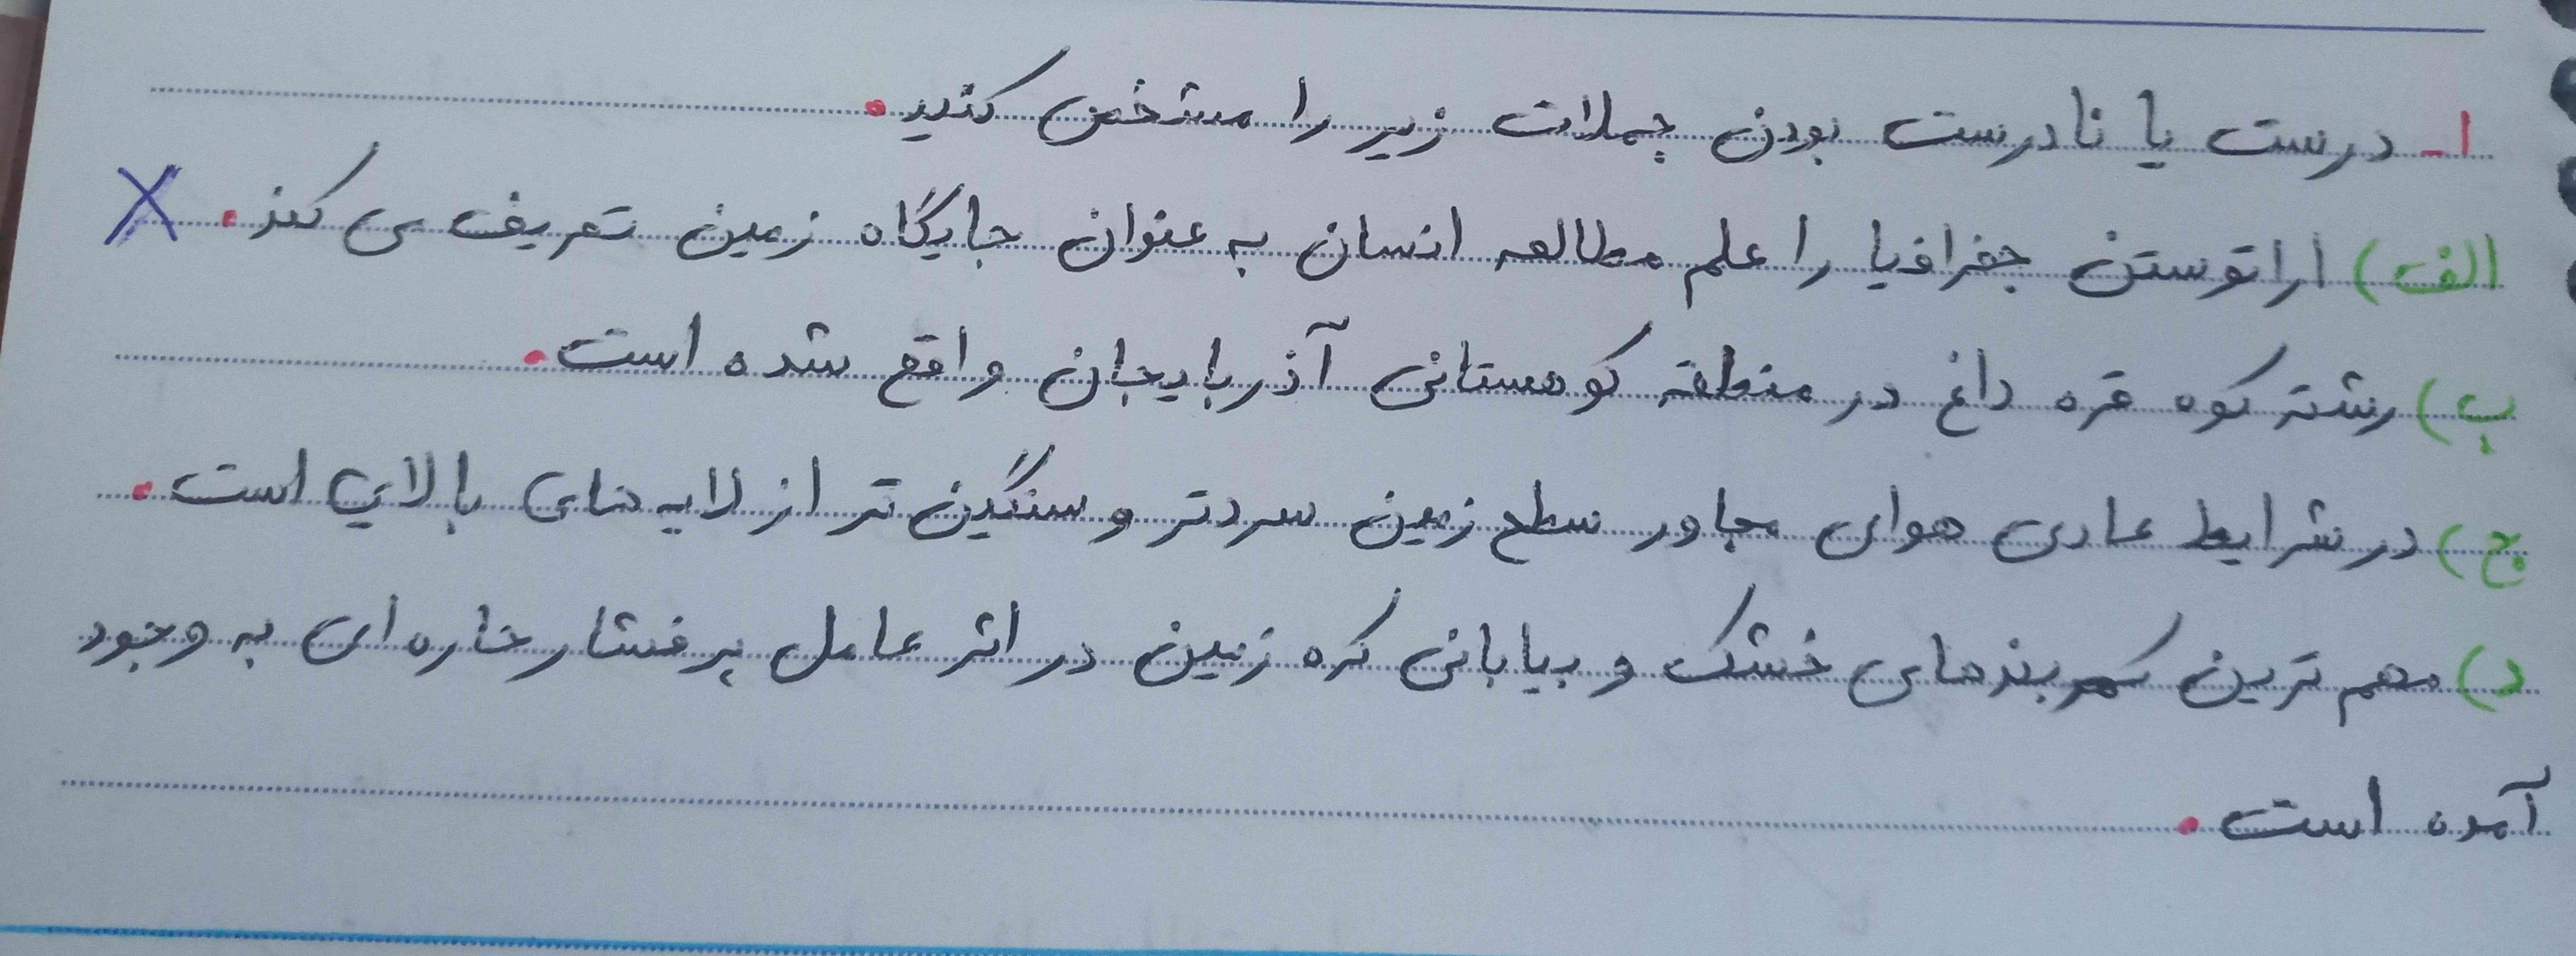 ۱- درست یا نادرست بودن جملات زیر را مشخص کنید.
الف) اراتوستن جغرافیا را علم مطالعه انسان به عنوان جایگاه زمین تعریف می کند. X
ب) رشته کوه قره داغ در منطقه کوهستانی آذربایجان واقع شده است.
ج) در شرایط عادی هوای مجاور سطح زمین سردتر و سنگین تر از لایه های بالایی است.
د) مهم ترین کمربندهای خشک و بیابانی کره زمین در اثر عامل پرفشار حاره ای به وجود
آمده است.